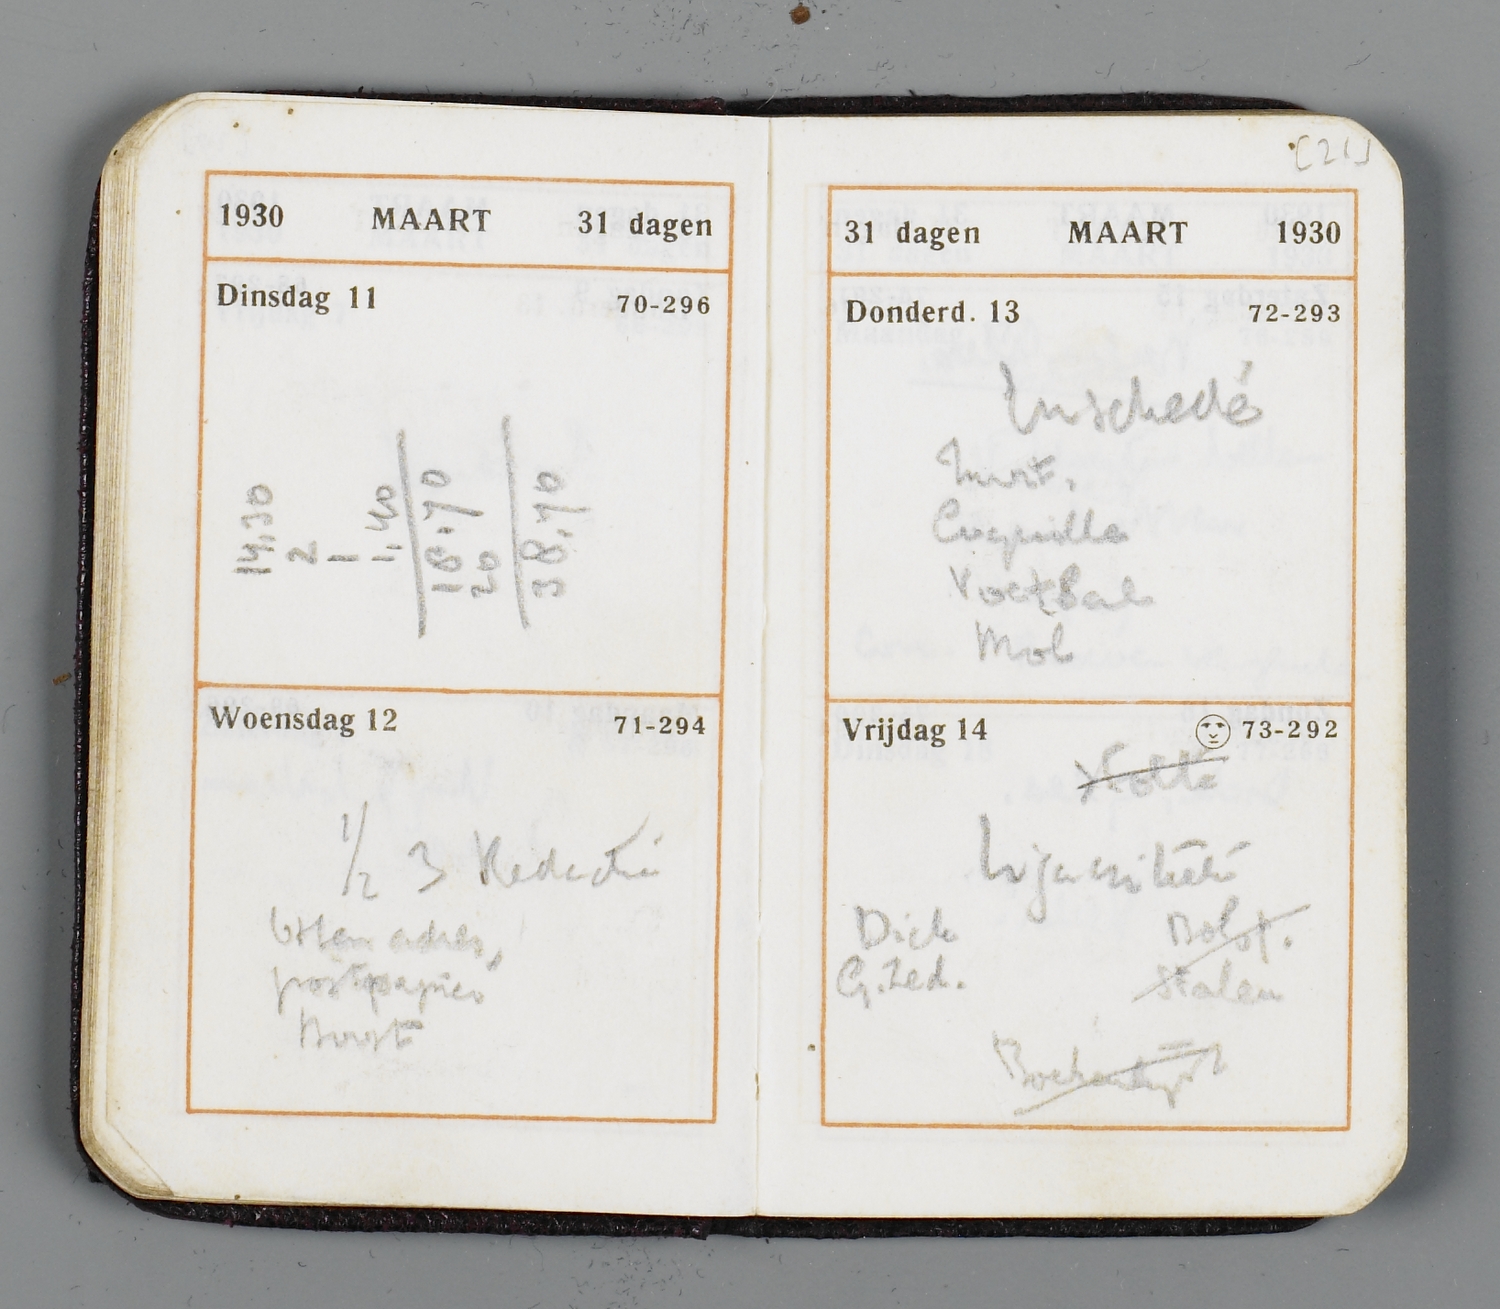 1930 MAART 31 dagen
Dinsdag 11 70-296
14,30
2
1
1,40
18,70
20
38,70
Woensdag 12 71-294
1/2 3 Redactie
adres,
[21]
31 dagen MAART 1930
Donderd. 13 72-293
Enschedé
Coquille
Voetbal
Mol
Vrijdag 14 73-292
Nolte
Dick
G. Zed. Stalen